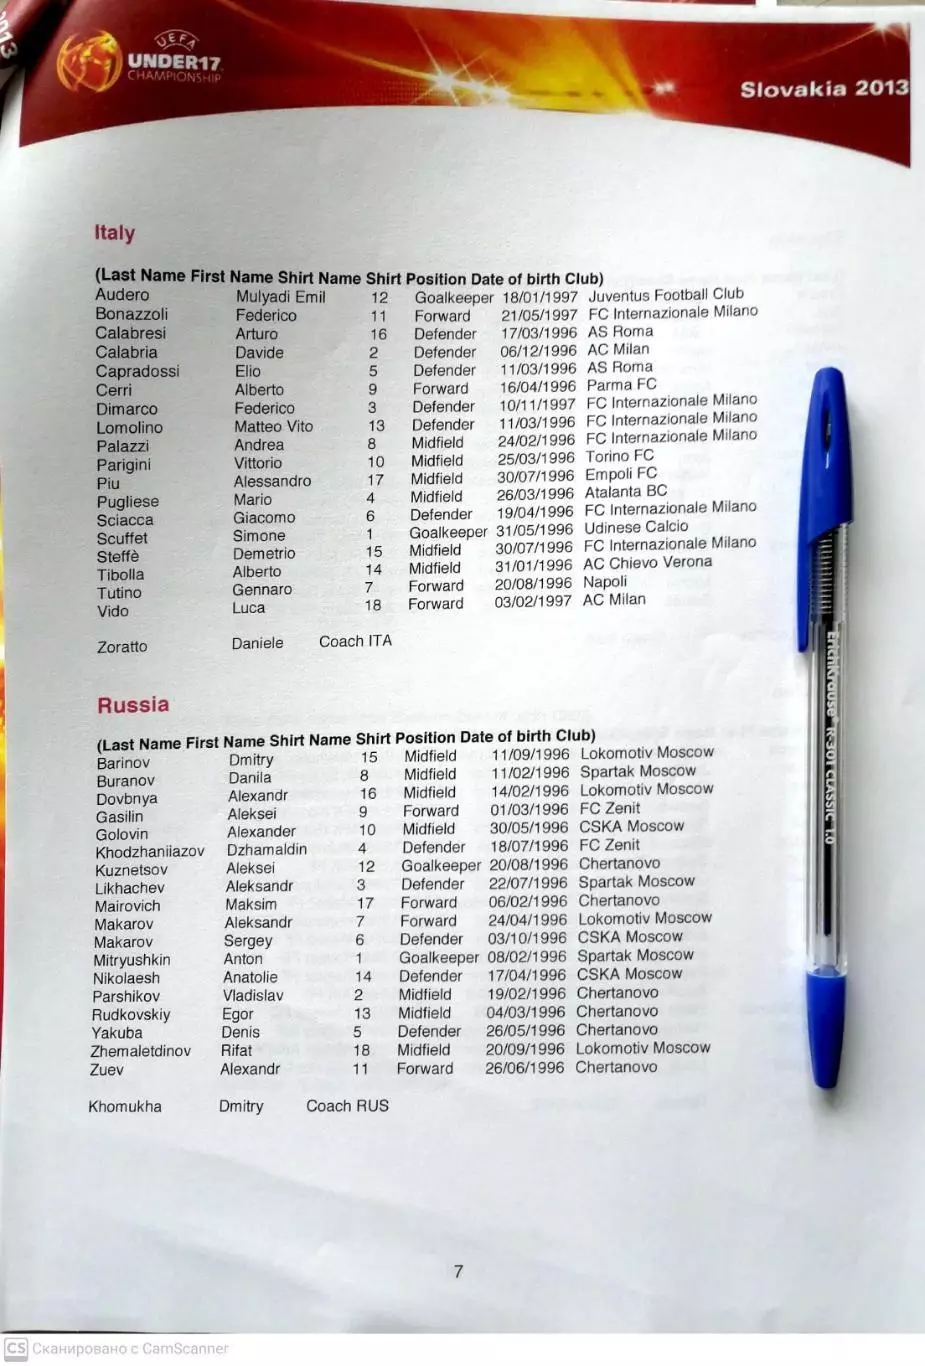 2013
UEFA
UNDER17
CHAMPIONSHIP
Slovakia 2013
Italy
(Last Name First Name Shirt Name Shirt Position Date of birth Club)
Audero Mulyadi Emil 12 Goalkeeper 18/01/1997 Juventus Football Club
Bonazzoli Federico 11 Forward 21/05/1997 FC Internazionale Milano
Calabresi Arturo 16 Defender 17/03/1996 AS Roma
Calabria Davide 2 Defender 06/12/1996 AC Milan
Capradossi Elio 5 Defender 11/03/1996 AS Roma
Cerri Alberto 9 Forward 16/04/1996 Parma FC
Dimarco Federico 3 Defender 10/11/1997 FC Internazionale Milano
Lomolino Matteo Vito 13 Defender 11/03/1996 FC Internazionale Milano
Palazzi Andrea 8 Midfield 24/02/1996 FC Internazionale Milano
Parigini Vittorio 10 Midfield 25/03/1996 Torino FC
Piu Alessandro 17 Midfield 30/07/1996 Empoli FC
Pugliese Mario 4 Midfield 26/03/1996 Atalanta BC
Sciacca Giacomo 6 Defender 19/04/1996 FC Internazionale Milano
Scuffet Simone 1 Goalkeeper 31/05/1996 Udinese Calcio
Steffè Demetrio 15 Midfield 30/07/1996 FC Internazionale Milano
Tibolla Alberto 14 Midfield 31/01/1996 AC Chievo Verona
Tutino Gennaro 7 Forward 20/08/1996 Napoli
Vido Luca 18 Forward 03/02/1997 AC Milan
Zoratto Daniele Coach ITA
Russia
(Last Name First Name Shirt Name Shirt Position Date of birth Club)
Barinov Dmitry 15 Midfield 11/09/1996 Lokomotiv Moscow
Buranov Danila 8 Midfield 11/02/1996 Spartak Moscow
Dovbnya Alexandr 16 Midfield 14/02/1996 Lokomotiv Moscow
Gasilin Aleksei 9 Forward 01/03/1996 FC Zenit
Golovin Alexander 10 Midfield 30/05/1996 CSKA Moscow
Khodzhaniiazov Dzhamaldin 4 Defender 18/07/1996 FC Zenit
Kuznetsov Aleksei 12 Goalkeeper 20/08/1996 Chertanovo
Likhachev Aleksandr 3 Defender 22/07/1996 Spartak Moscow
Mairovich Maksim 17 Forward 06/02/1996 Chertanovo
Makarov Aleksandr 7 Forward 24/04/1996 Lokomotiv Moscow
Makarov Sergey 6 Defender 03/10/1996 CSKA Moscow
Mitryushkin Anton 1 Goalkeeper 08/02/1996 Spartak Moscow
Nikolaesh Anatolie 14 Defender 17/04/1996 CSKA Moscow
Parshikov Vladislav 2 Midfield 19/02/1996 Chertanovo
Rudkovskiy Egor 13 Midfield 04/03/1996 Chertanovo
Yakuba Denis 5 Defender 26/05/1996 Chertanovo
Zhemaletdinov Rifat 18 Midfield 20/09/1996 Lokomotiv Moscow
Zuev Alexandr 11 Forward 26/06/1996 Chertanovo
Khomukha Dmitry Coach RUS
ErichKrause R-301 CLASSIC 1.0
7
CS Сканировано с CamScanner